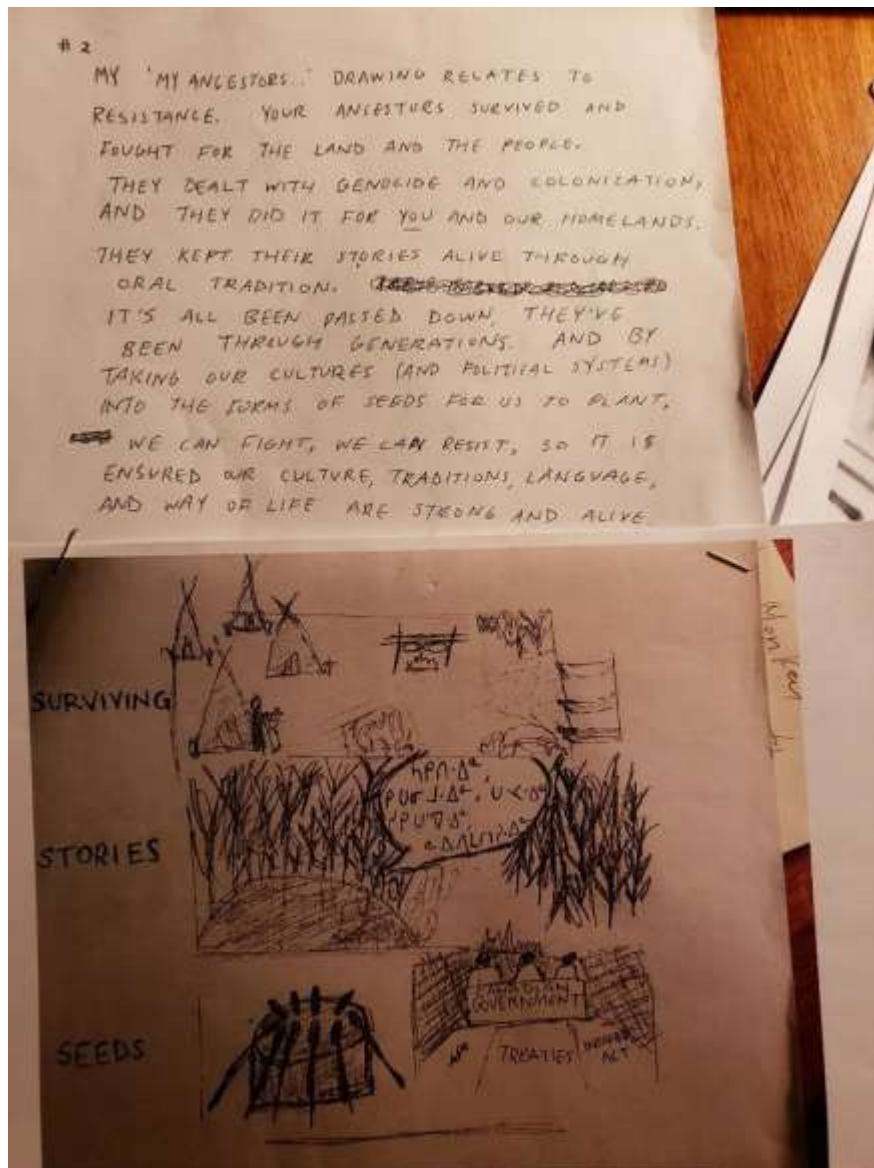 # 2
MY 'MY ANCESTORS...' DRAWING RELATES TO
RESISTANCE. YOUR ANCESTORS SURVIVED AND
FOUGHT FOR THE LAND AND THE PEOPLE.
THEY DEALT WITH GENOCIDE AND COLONIZATION,
AND THEY DID IT FOR YOU AND OUR HOMELANDS.
THEY KEPT THEIR STORIES ALIVE THROUGH
ORAL TRADITION.
IT'S ALL BEEN PASSED DOWN, THEY'VE
BEEN THROUGH GENERATIONS. AND BY
TAKING OUR CULTURES (AND POLITICAL SYSTEMS)
INTO THE FORMS OF SEEDS FOR US TO PLANT,
WE CAN FIGHT, WE CAN RESIST, SO IT IS
ENSURED OUR CULTURE, TRADITIONS, LANGUAGE,
AND WAY OF LIFE ARE STRONG AND ALIVE
SURVIVING
STORIES
SEEDS
CANADIAN
GOVERNMENT
TREATIES
INDIAN
ACT